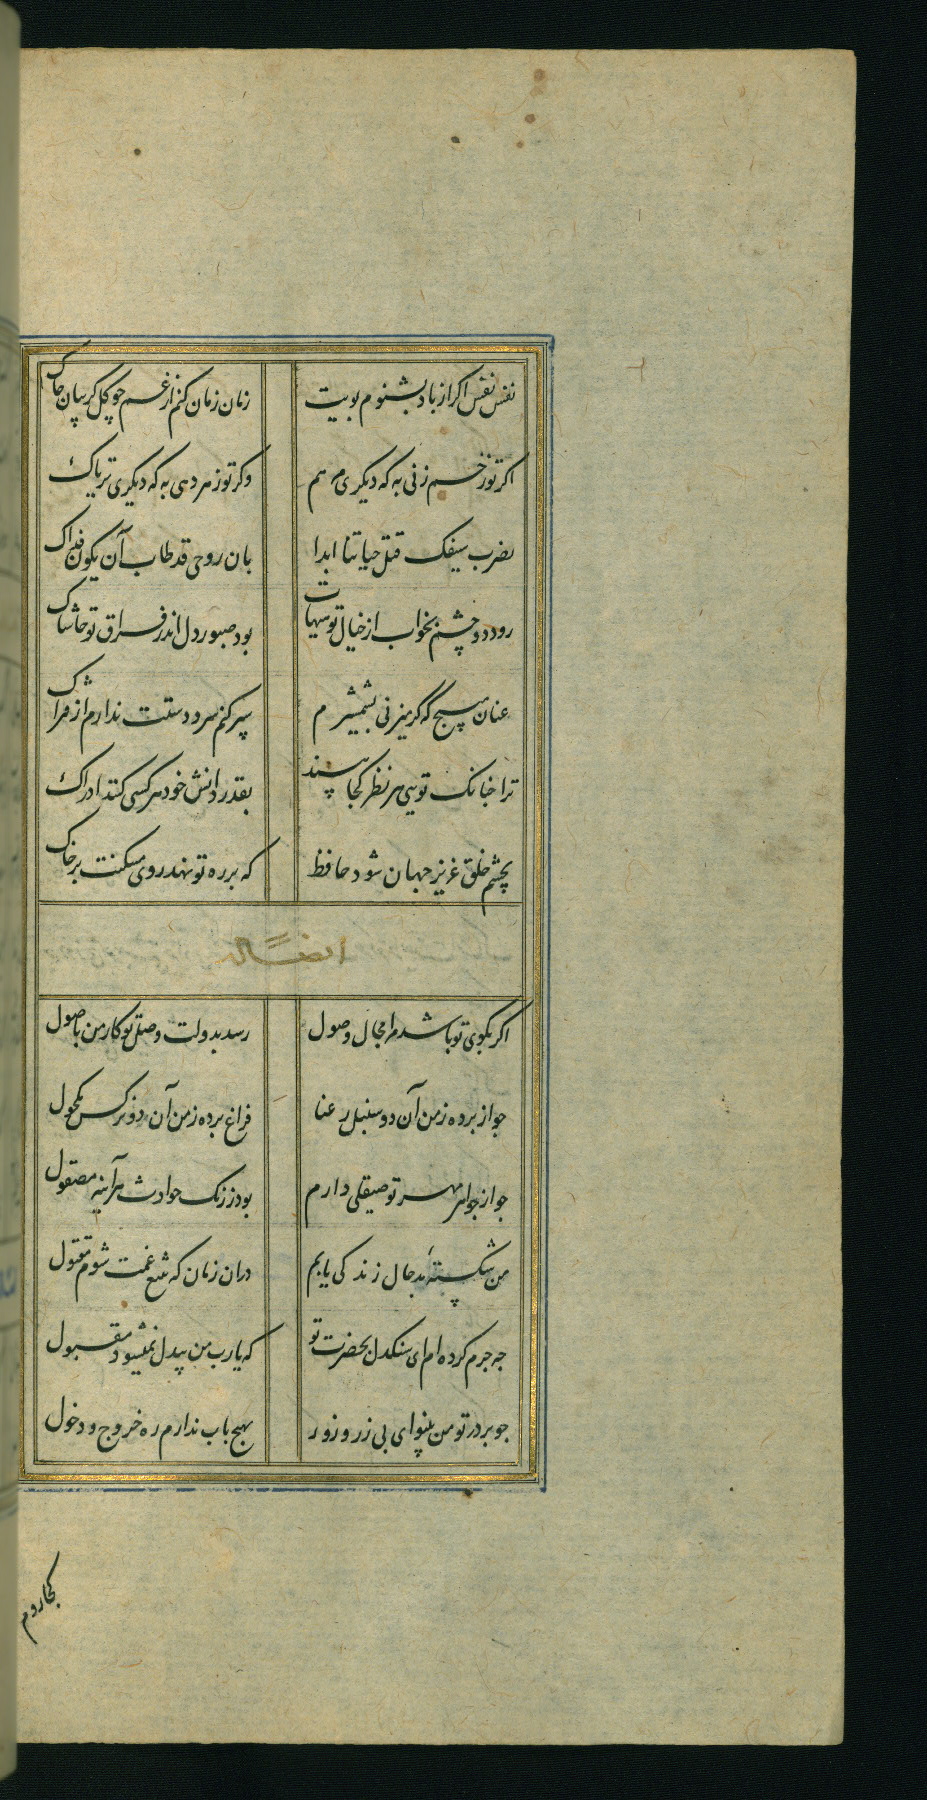 نفس نفس اکر از باد بشنوم بویت
زمان زمان کنم از غم چو کل کریبان چاک
اکر تو زخم زنی به که دیکری مرهم
وکر تو زهر دهی به که دیکری تریاک
بضرب سیفک قتلی حیاتنا ابدا
بان روحی قد طاب آن یکون فداک
رود دو چشم بخواب از خیال تو هیهات
بود صبور دل اندر فراق تو حاشاک
عنان مپیچ که کر میزنی بشمشیرم
سپر کنم سر و دستت ندارم از فتراک
ترا چنانک تویی هر نظر کجا بیند
بقدر دانش خود هر کسی کند ادراک
بچشم خلق عزیز جهان شود حافظ
که بر ره تو نهد روی مسکنت بر خاک
ایضا له
اکر بکوی تو باشد مرا مجال وصول
رسد بدولت وصل تو کار من باصول
جو از برده ز من آن دو سنبل رعنا
فراغ برده ز من آن دو نرکس مکحول
جو از جواهر مهر تو صیقلی دارم
بود ز زنک حوادث هر آینه مصقول
من شکسته بدحال زندکی یابم
دران زمان که بتیغ غمت شوم مقتول
جه جرم کرده ام ای سنکدل بحضرت تو
که یارب من بیدل نمیشود مقبول
جو بر در تو من بینوای بی زر و زور
بهیچ باب ندارم ره خروج و دخول
کجا روم